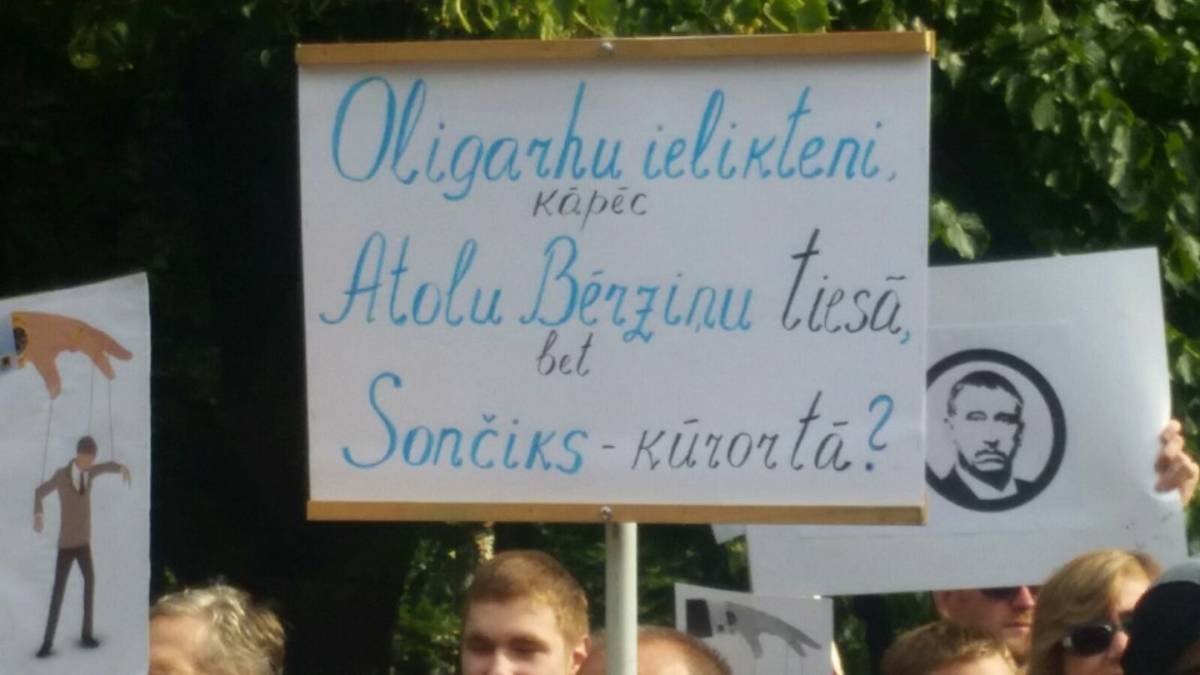 Oligarhu ielikteni,
kāpēc
Atolu Bērziņu tiesā,
bet
Sončiks - kūrortā?